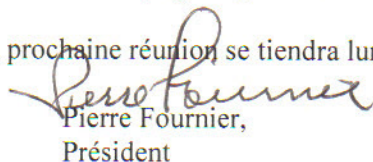 prochaine réunion se tiendra lun
Pierre Fournier
Pierre Fournier,
Président